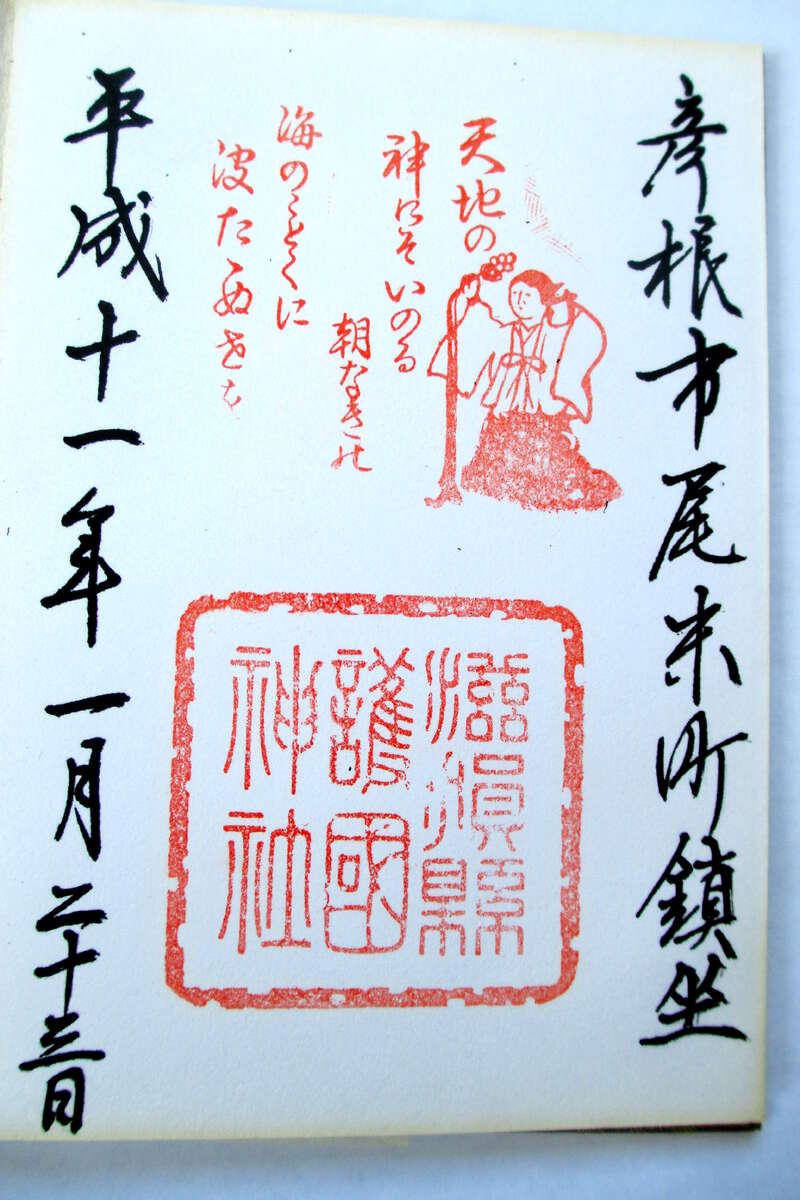 彦根市尾末町鎮坐
天地の
神にそいのる
朝なきの
海のことくに
波たゝぬ世を
滋賀縣
護國
神社
平成十一年一月二十三日